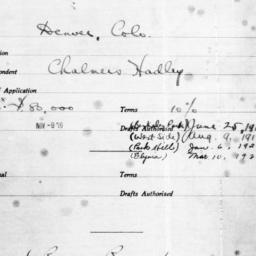 Denver, Colo.
ion
ondent Chalmers Hadley
f Application
$80,000 Terms 10%
NOV -8 '9 Drafts Authorised June 25, 191
(West Side) Aug. 9, 191
(Park Hill) Jan. 6, 192
(Elyria) Mar. 10, 192
nal Terms
Drafts Authorised